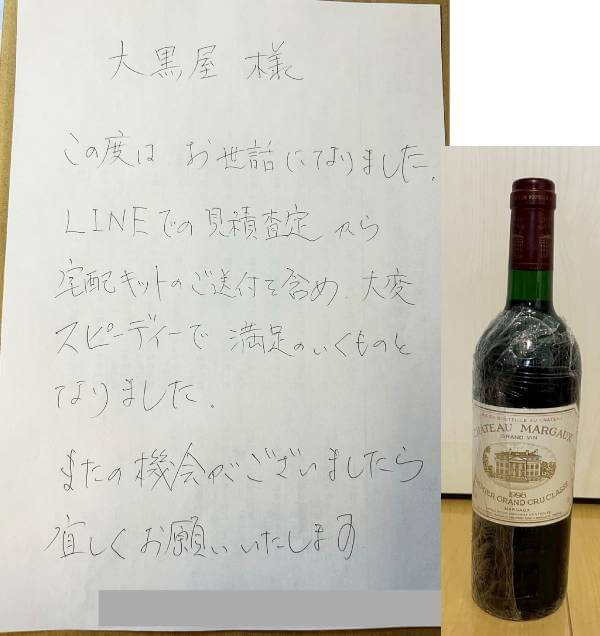 大黒屋 様
この度は お世話になりました。
LINEでの見積査定から
宅配キットのご送付を含め、大変
スピーディーで 満足のいくものと
なりました。
またの機会がございましたら
宜しくお願いいたします
MIS EN BOUTEILLE AU CHATEAU
CHATEAU MARGAUX
GRAND VIN
PREMIER GRAND CRU CLASSÉ
MARGAUX